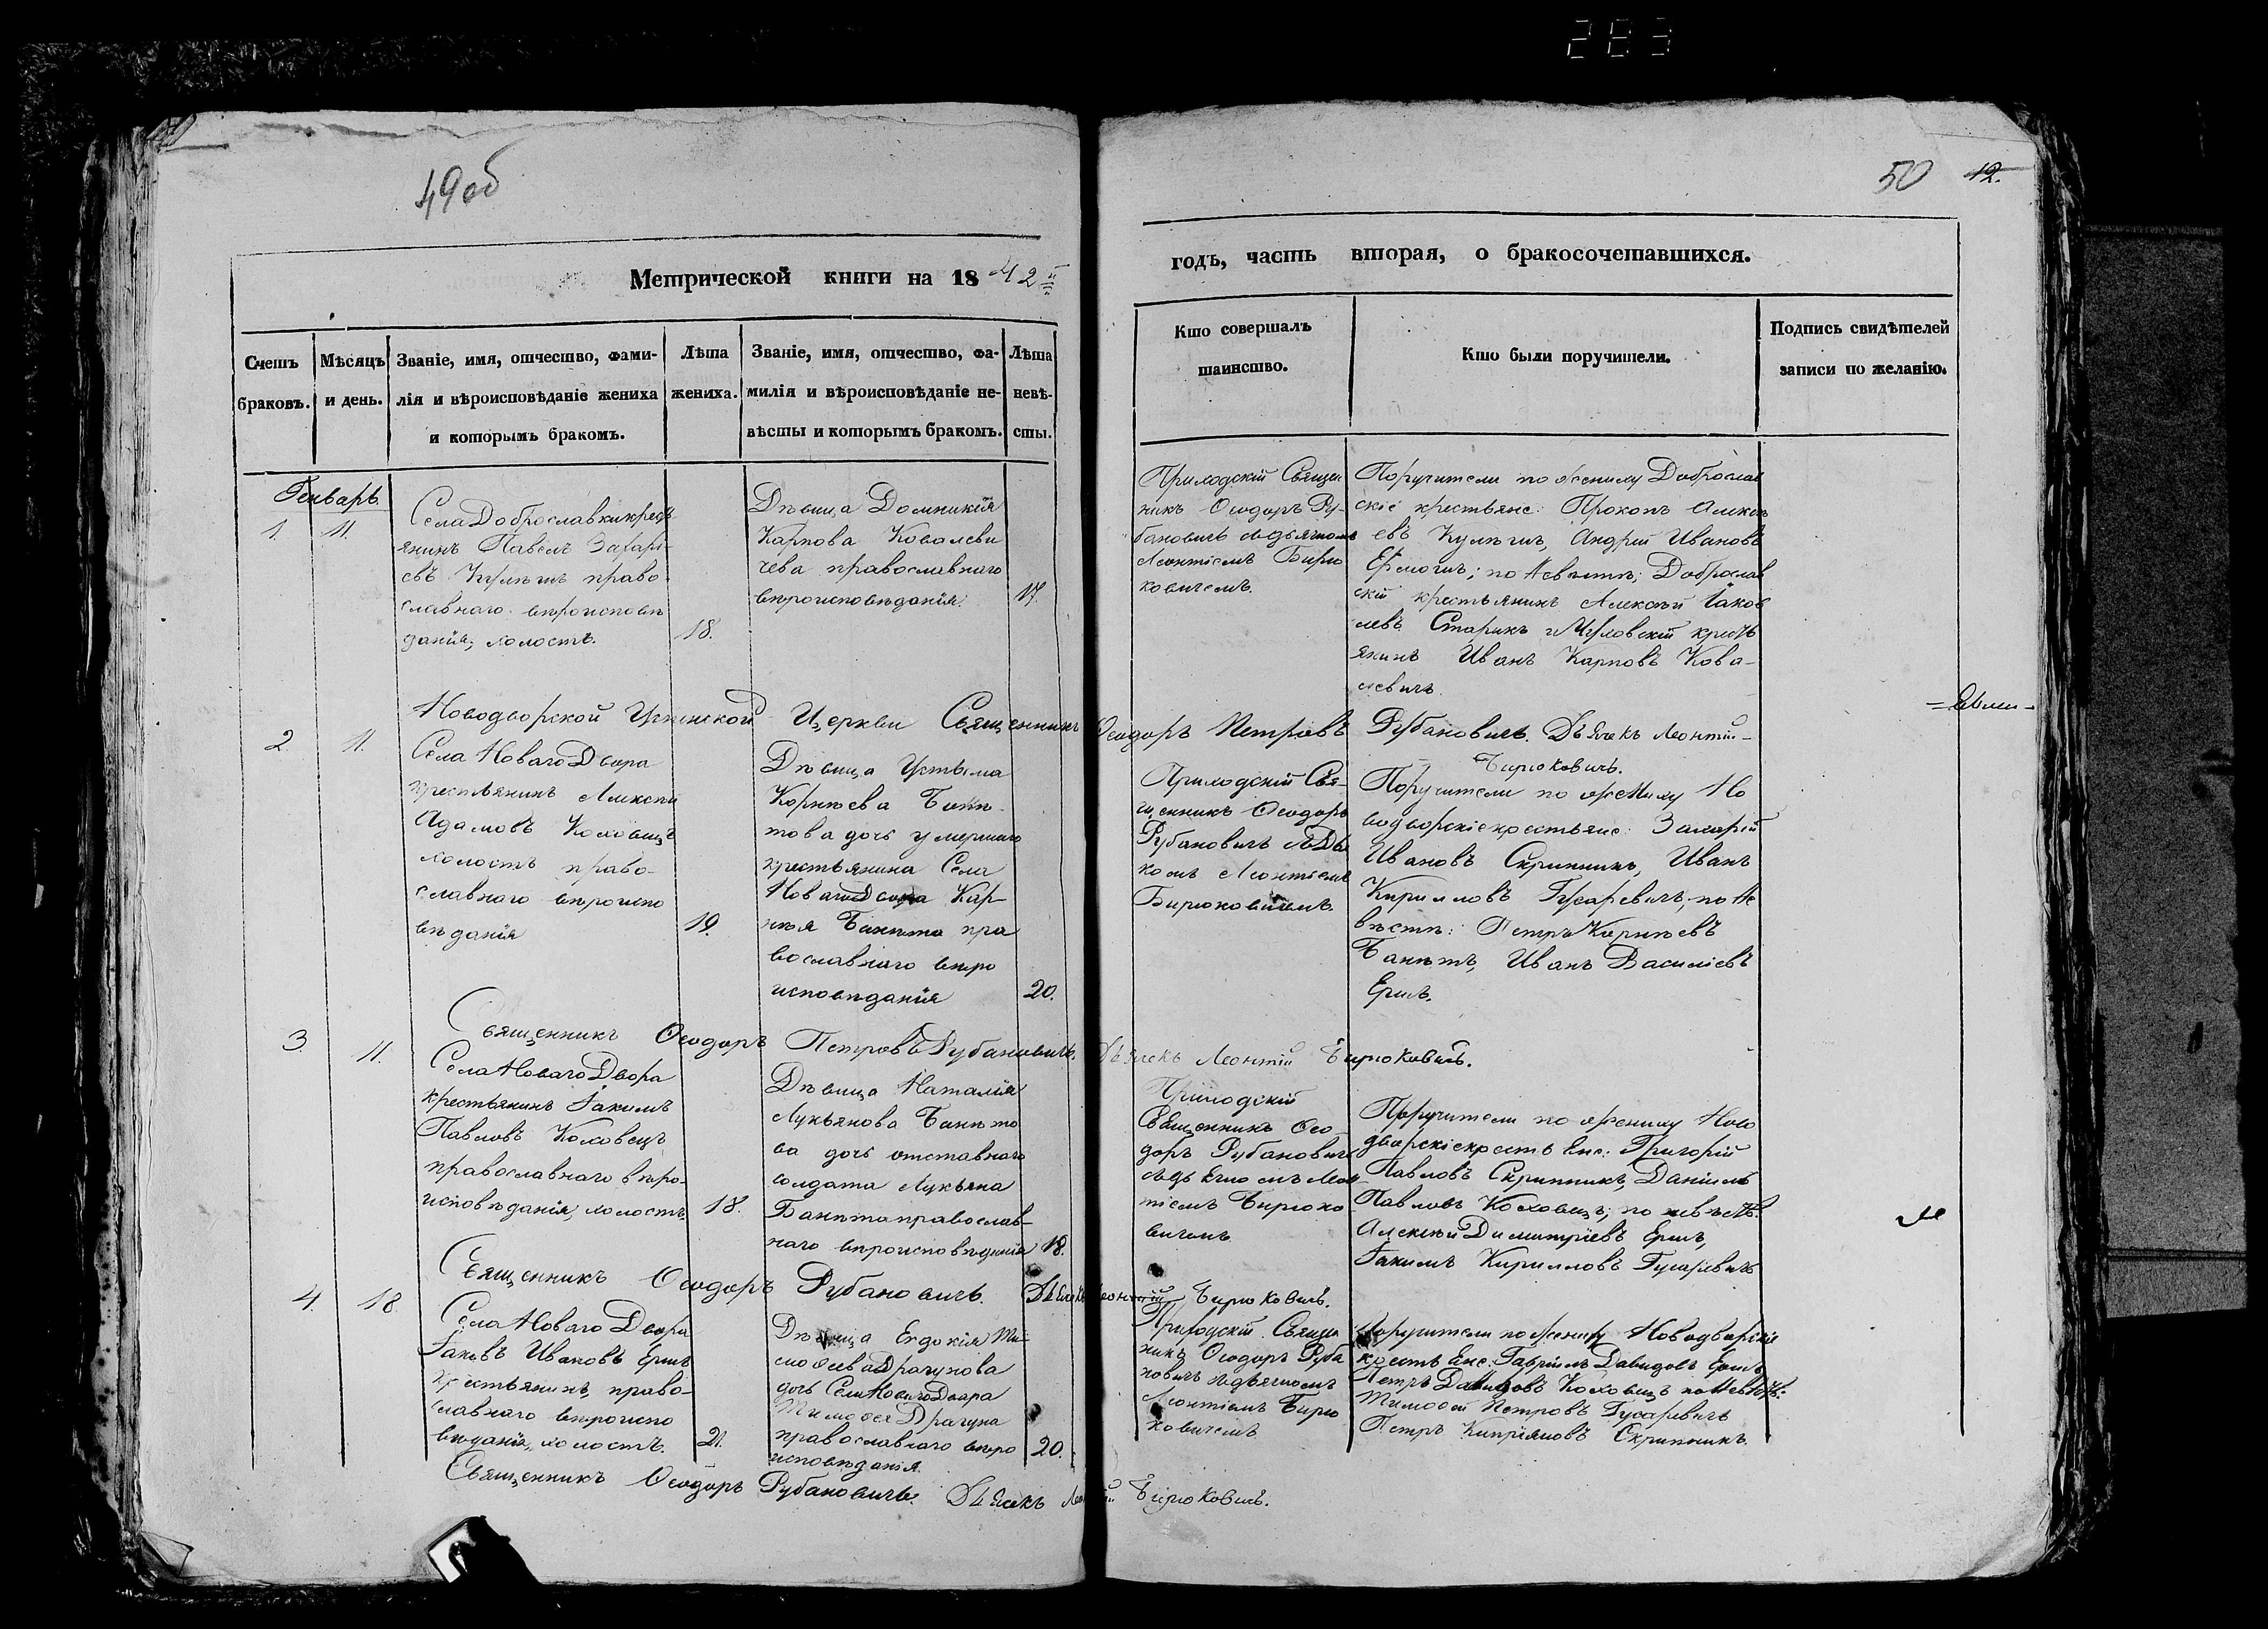 283
49об
50 12.
Метрической книги на 1842й
годъ, часть вторая, о бракосочетавшихся.
Счетъ браковъ.
Мѣсяцъ и день.
Званіе, имя, отчество, фами-
лія и вѣроисповѣданіе жениха
и которымъ бракомъ.
Лѣта
жениха.
Званіе, имя, отчество, фа-
милія и вѣроисповѣданіе не-
вѣсты и которымъ бракомъ.
Лѣта
невѣ-
сты.
Кто совершалъ
таинство.
Кто были поручители.
Подпись свидѣтелей
записи по желанію.
Генварь
1. 11.
Села Доброславки кресть
янинъ Павелъ Захарі-
евъ Кулѣшъ право
славнаго вѣроисповѣ
данія, холостъ.
18.
Дѣвица Домникія
Карпова Ковалеви
чева православнаго
вѣроисповѣданія.
17.
Приходскій Священ
никъ Ѳеодоръ Ру-
бановичъ съ дьячкомъ
Леонтіемъ Бирю
ковичемъ.
Поручители по жениху Доброслав
скіе крестьяне: Прокопъ Алексѣ
евъ Кулѣшъ, Андрей Ивановъ
по невѣстѣ: Доброслав
скій крестьянинъ Алексѣй Іаков
левъ Старикъ и крестъ
янинъ Иванъ Карповъ Кова-
левичъ.
Новодворской Успенской Церкви Священникъ Ѳеодоръ Петровъ Рубановичъ. Дьячекъ Леонтій
Бирюковичъ.
2. 11.
Села Новаго Двора
крестьянинъ Алексѣй
Адамовъ Коховецъ
холостъ право-
славнаго вѣроиспо
вѣданія
19.
Дѣвица Устьма
Корнѣева Банѣ-
това дочь умершаго
крестьянина Села
Новаго Двора Кар-
нѣя Банѣта пра
вославнаго вѣро
исповѣданія
20.
Приходскій Свя-
щенникъ Ѳеодоръ
Рубановичъ съ Дья
комъ Леонтіемъ
Бирюковичемъ.
Поручители по жениху Но
водворскіе крестьяне: Захарій
Ивановъ Скрипникъ, Иванъ
Кирилловъ Гусаревичъ, по не
вѣстѣ: Петръ Корнѣевъ
Банѣтъ, Иванъ Василіевъ
Ершъ.
Священникъ Ѳеодоръ Петровъ Рубановичъ. Дьячекъ Леонтій Бирюковичъ.
3. 11.
Села Новаго Двора
крестьянинъ Іакимъ
Павловъ Коховецъ
православнаго вѣро-
исповѣданія, холостъ.
18.
Дѣвица Наталія
Лукьянова Банѣто
ва дочь отставнаго
солдата Лукьяна
Банѣта православ-
наго вѣроисповѣданія
18.
Приходскій
Священникъ Ѳео-
доръ Рубановичъ
съ дьячкомъ Леон
тіемъ Бирюко
вичемъ
Поручители по жениху Ново
дворскіе крестьяне: Григорій
Павловъ Скрипникъ, Даніилъ
Павловъ Коховецъ; по невѣстѣ:
Алексѣй Димитріевъ Ершъ,
Іакимъ Кирилловъ Гусаревичъ
Священникъ Ѳеодоръ Рубановичъ. Дьячекъ Леонтій Бирюковичъ.
4. 18.
Села Новаго Двора
Іаковъ Ивановъ Ершъ
крестьянинъ, право-
славнаго вѣроиспо
вѣданія, холостъ.
21.
Дѣвица Евдокія Ти-
моѳеева Драгунова
дочь Села Новаго Двора
Тимоѳея Драгуна
православнаго вѣро
исповѣданія.
20.
Приходскій Священ
никъ Ѳеодоръ Руба
новичъ съ дьячкомъ
Леонтіемъ Бирю
ковичемъ
Поручители по жениху Новодворскіе
крестьяне: Гавріилъ Давидовъ Ершъ,
Петръ Давидовъ Коховецъ по невѣстѣ:
Тимоѳей Петровъ Гусаревичъ
Петръ Кипріяновъ Скрипникъ.
Священникъ Ѳеодоръ Рубановичъ. Дьячекъ Леонтій Бирюковичъ.